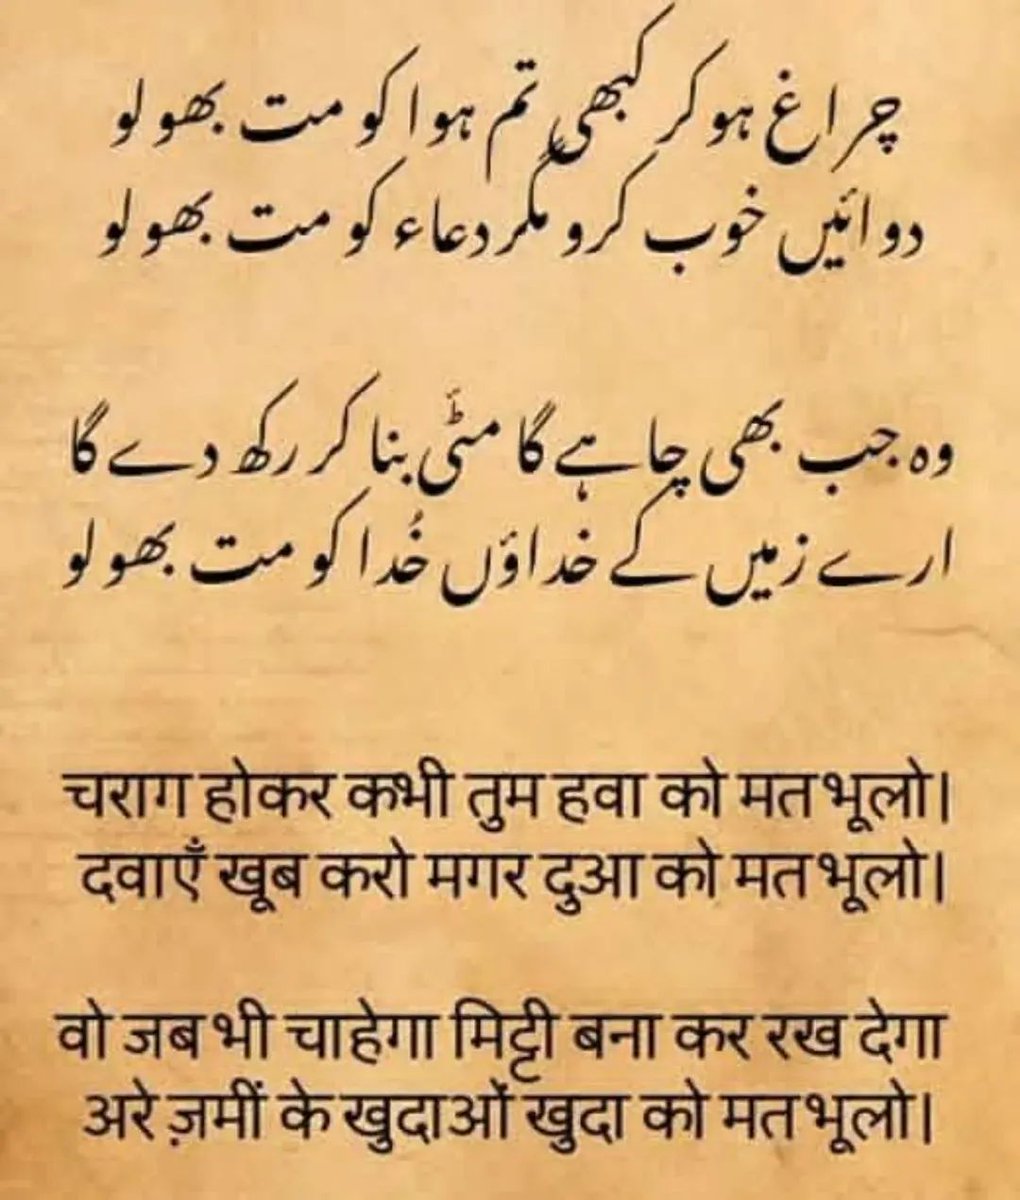 چراغ ہوکر کبھی تم ہوا کو مت بھولو
دوائیں خوب کرو مگر دعاء کو مت بھولو
وہ جب بھی چاہے گا مٹّی بنا کر رکھ دے گا
ارے زمیں کے خداؤں خُدا کو مت بھولو
चराग होकर कभी तुम हवा को मत भूलो।
दवाएँ खूब करो मगर दुआ को मत भूलो।
वो जब भी चाहेगा मिट्टी बना कर रख देगा
अरे ज़मीं के खुदाओं खुदा को मत भूलो।